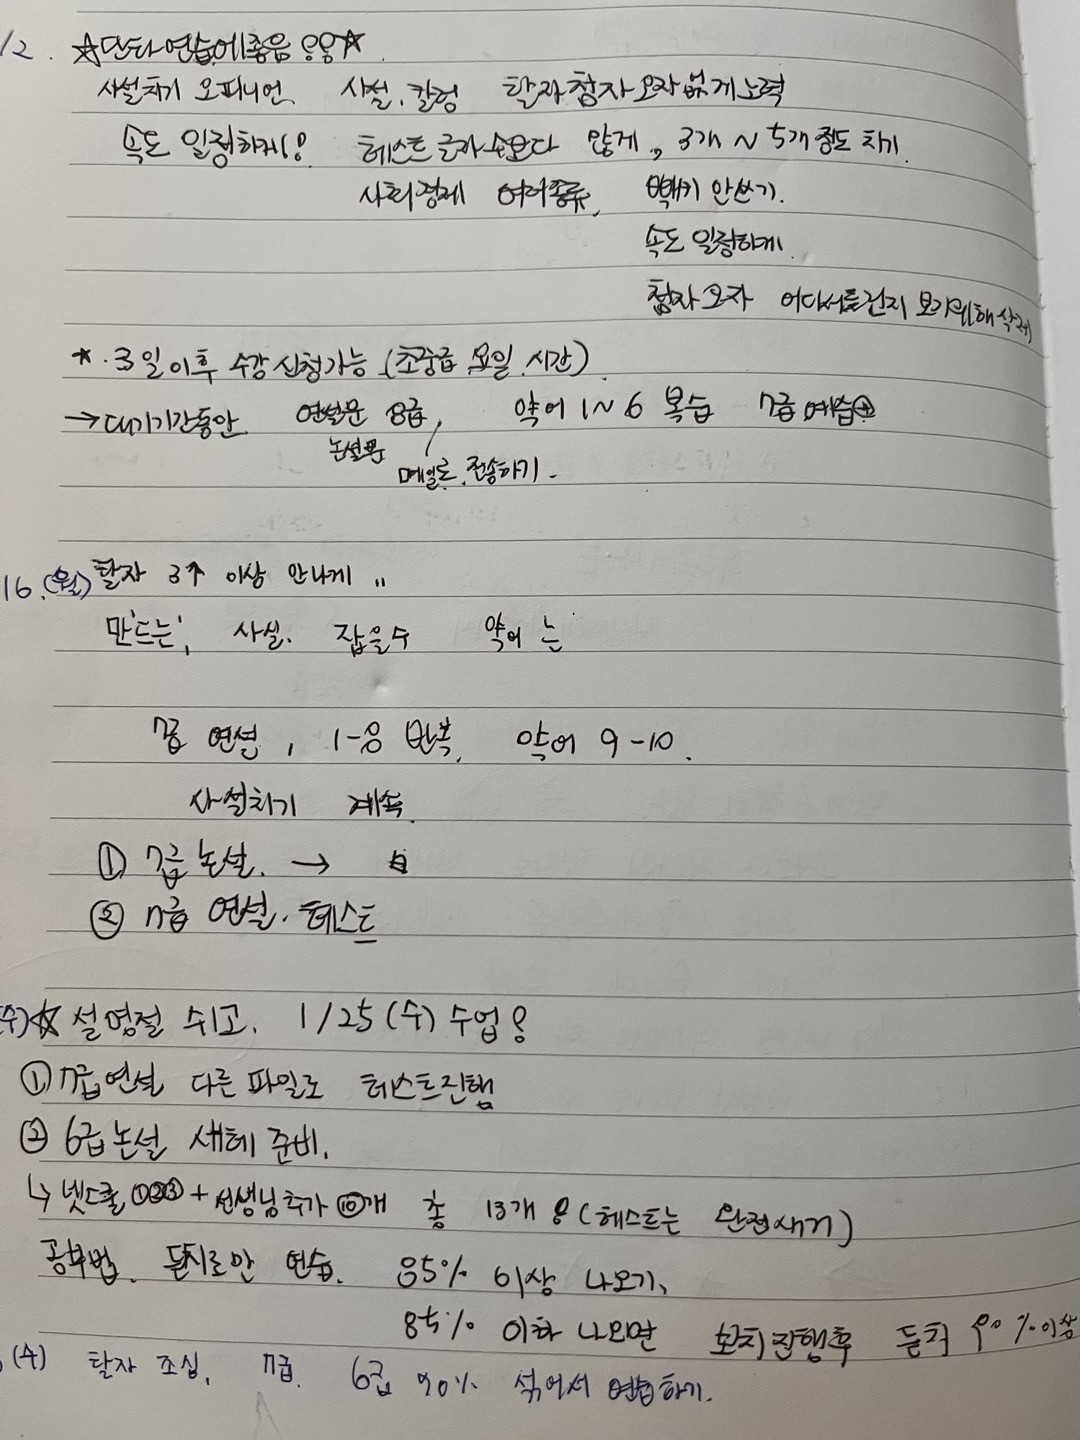 12. ☆단타연습에좋음!!☆
사설치기 오피니언. 사설, 칼럼 탈자첨자 오자 없게 노력
속도 일정하게! 테스트 글자수보다 많게,, 3개 ~ 5개 정도 치기.
사회경제 여러종류, 빽키 안쓰기.
속도 일정하게.
첨자오자 어디서틀린지 보기위해
*. 3일 이후 수강신청가능 (초중급 요일 시간)
→ 대기기간동안 연설문 8급, 약어 1~6 복습 7급 예습
논설문 메일로 전송하기.
16.(월) 탈자 3↑ 이상 안나게 "
만'드는', 사설. 잡을수 약어 는
7급 연설, 1-8 반복, 약어 9-10.
사설치기 계속.
① 7급 논설. →
② 7급 연설. 테스트
(수)☆ 설명절 쉬고. 1/25(수) 수업!
① 7급연설 다른파일로 테스트진행
② 6급논설 새테 준비.
↳ 넷스쿨 ①②③ + 선생님추가 ⑩개 총 13개! (테스트는 완전새거)
공부법. 듣치로만 연습. 85% 이상 나오기,
85% 이하 나오면 보치진행후 듣치 90%이상
(수) 탈자 조심, 7급. 6급 90% 섞어서 연습하기.